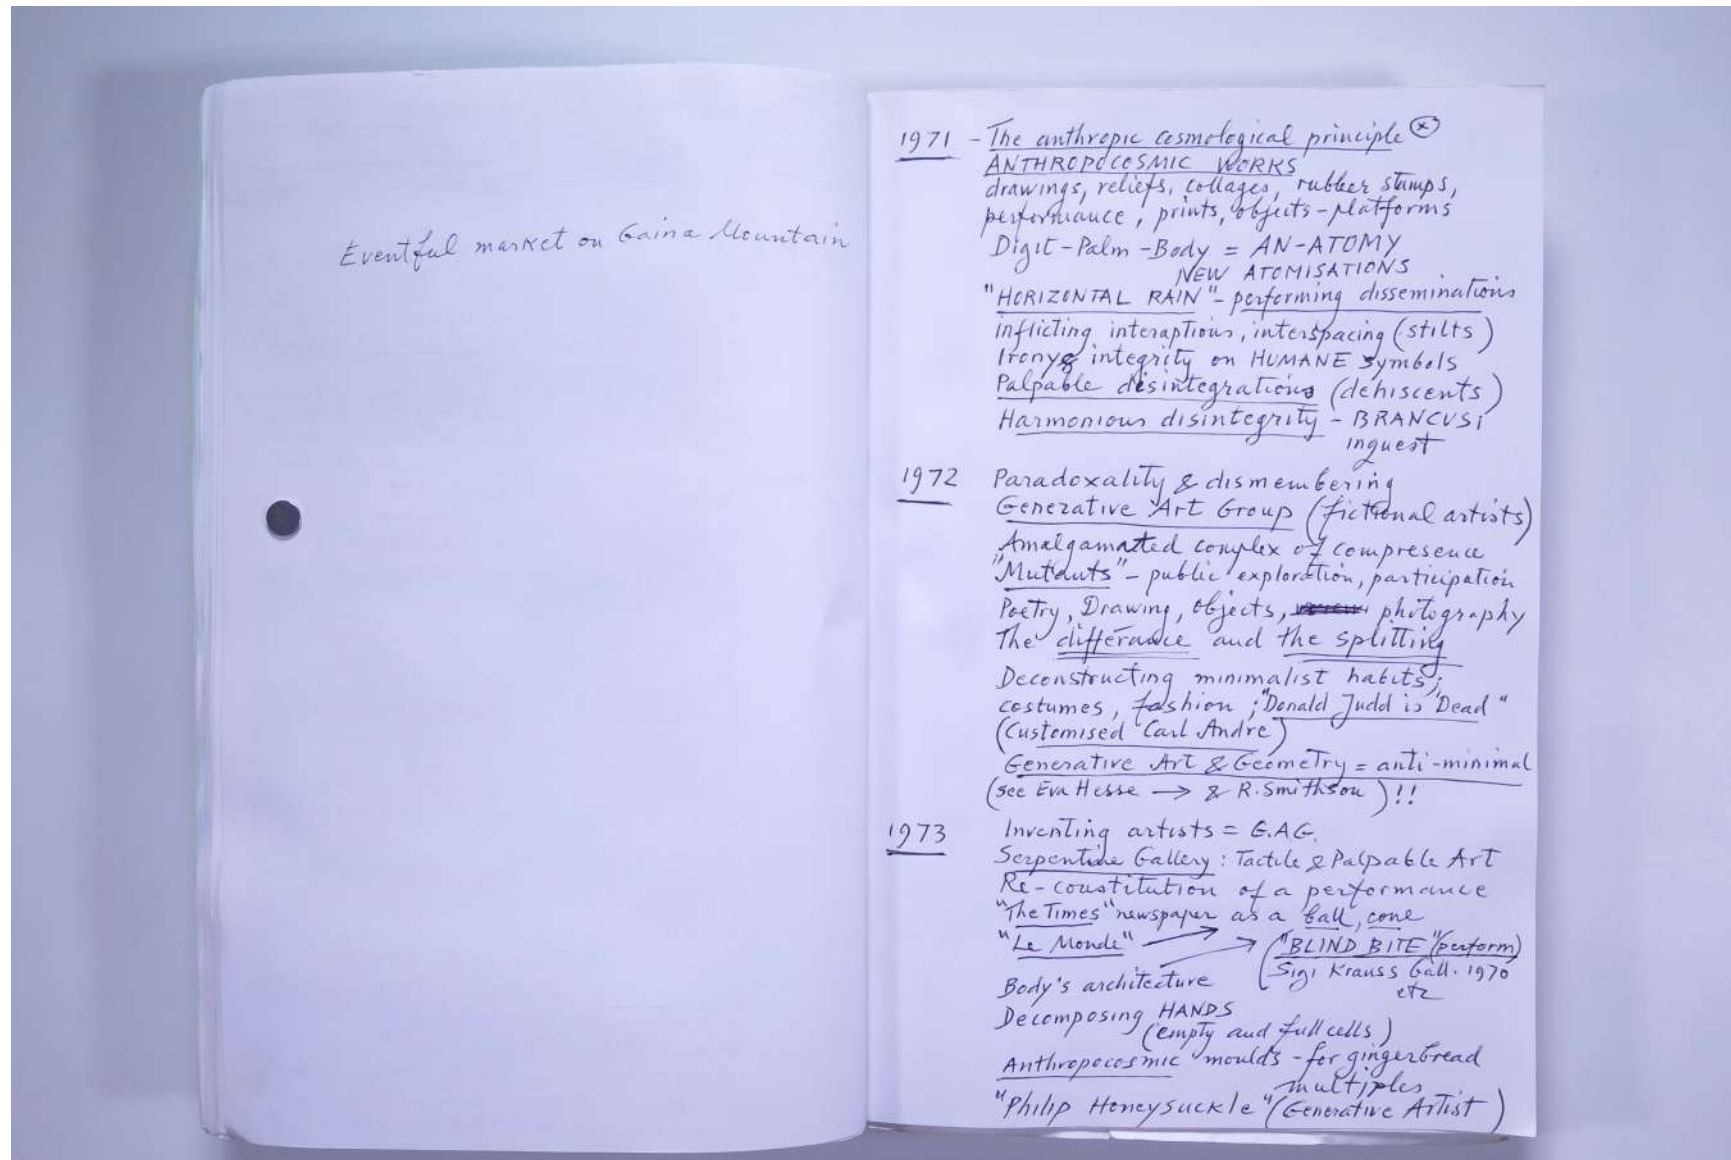 Eventful market on Gaina Mountain
1971 - The anthropic cosmological principle ⓧ
ANTHROPOCOSMIC WORKS
drawings, reliefs, collages, rubber stamps,
performance, prints, objects-platforms
Digit-Palm-Body = AN-ATOMY
NEW ATOMISATIONS
"HORIZONTAL RAIN" - performing disseminations
inflicting interaptions, interspacing (stilts)
Irony & integrity on HUMANE symbols
Palpable disintegrations (dehiscents)
Harmonious disintegrity - BRANCUSi
inquest
1972 Paradoxality & dismembering
Generative Art Group (fictional artists)
Amalgamated complex of compresence
"Mutants" - public exploration, participation
Poetry, Drawing, objects, photography
The différance and the splitting
Deconstructing minimalist habits;
costumes, fashion; "Donald Judd is Dead"
(Customised Carl Andre)
Generative Art & Geometry = anti-minimal
(see Eva Hesse → & R. Smithson)!!
1973 Inventing artists = G.A.G.
Serpentine Gallery: Tactile & Palpable Art
Re-constitution of a performance
"The Times" newspaper as a ball, cone
"Le Monde" → → ("BLIND BITE" (perform)
Body's architecture Sigi Krauss Gall. 1970
etz
Decomposing HANDS
(empty and full cells)
Anthropocosmic moulds - for gingerbread
multiples
"Philip Honeysuckle" (Generative Artist)